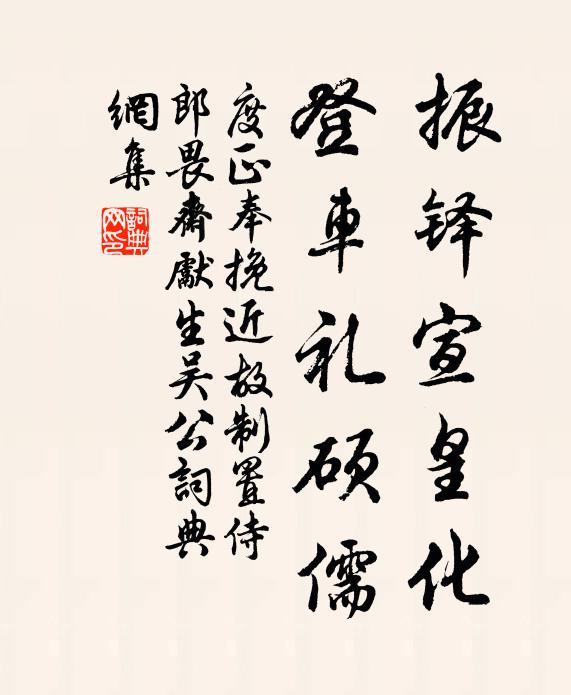 振铎宣皇化
登車礼硕儒
度正奉挽近故制置侍
郎畏齋獻生吴公詞典
網集
詞典
网印